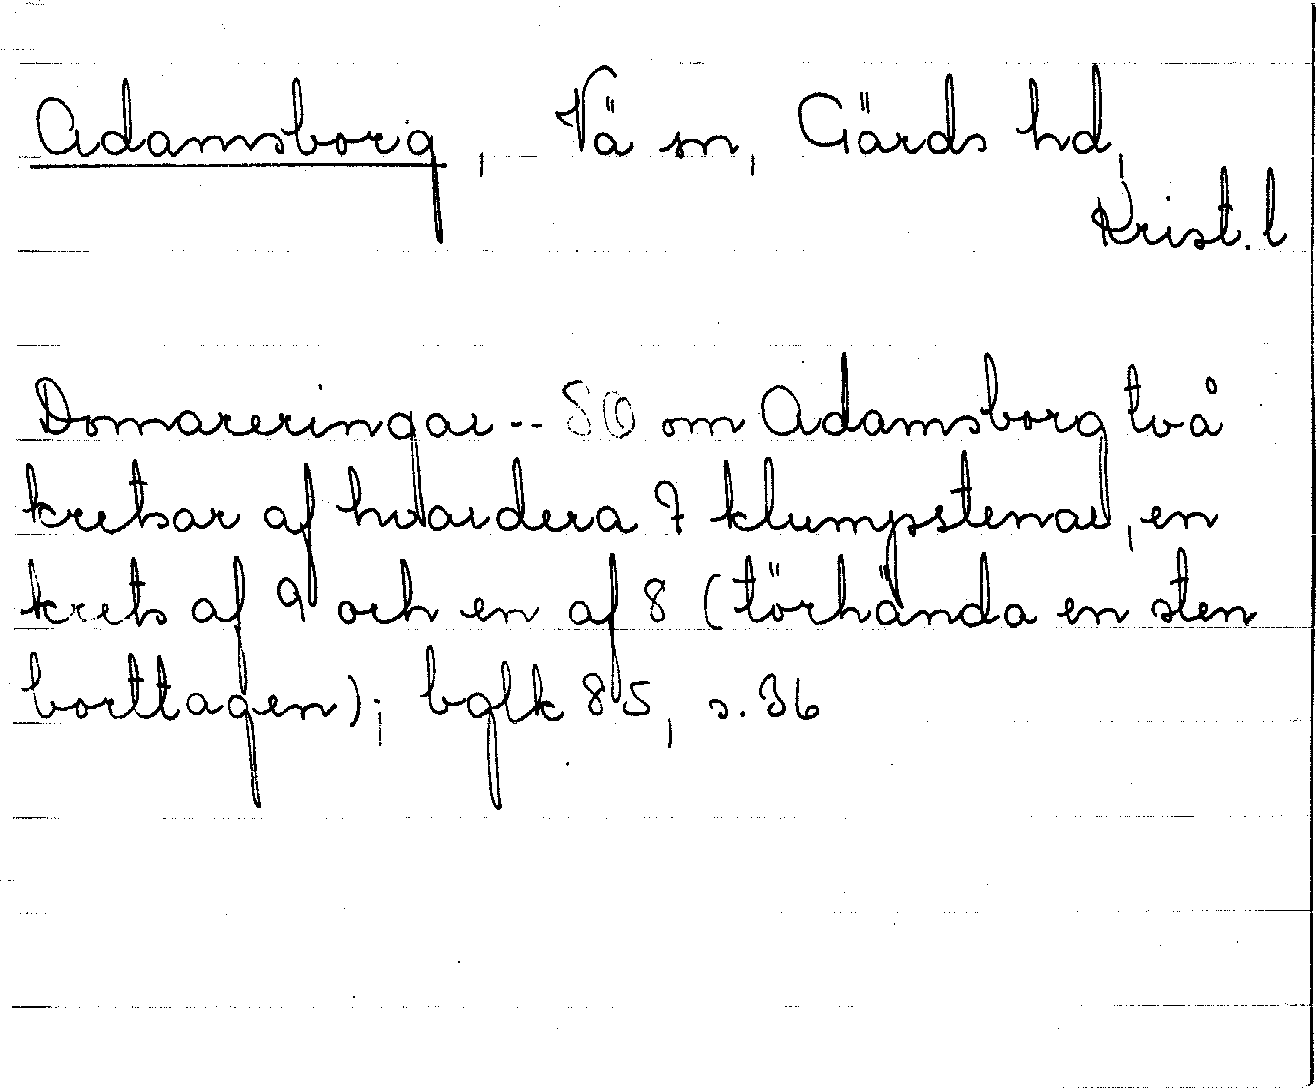 Adamsborg, Vä sn, Gärds hd,
Krist. l
Domareringar -- SO om Adamsborg två
kretsar af hvardera 7 klumpstenar, en
krets af 9 och en af 8 (törhända en sten
borttagen); bglk 85, s. 36